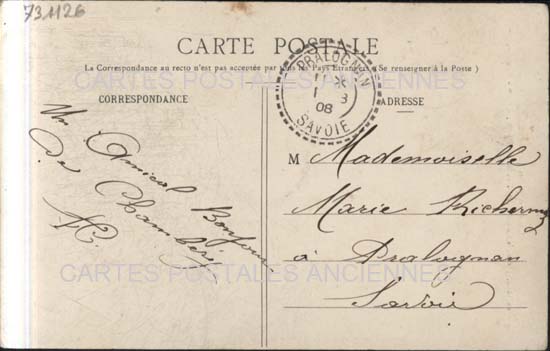 731126
CARTE POSTALE
La Correspondance au recto n'est pas acceptée par tous les Pays Étrangers (Se renseigner à la Poste)
CARTES POSTALES ANCIENNES
CORRESPONDANCE
ADRESSE
PRALOGNAN
08
SAVOIE
Un Amical Bonjour
de Chambéry
M Mademoiselle
Marie
à Pralognan
Savoie
CARTES POSTALES ANCIENNES